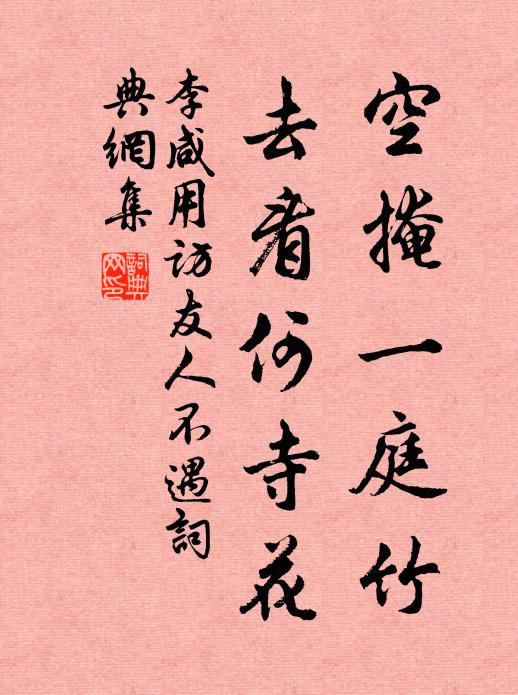 空掩一庭竹
去看何寺花
李咸用访友人不遇詞
典網集
詞典
网印